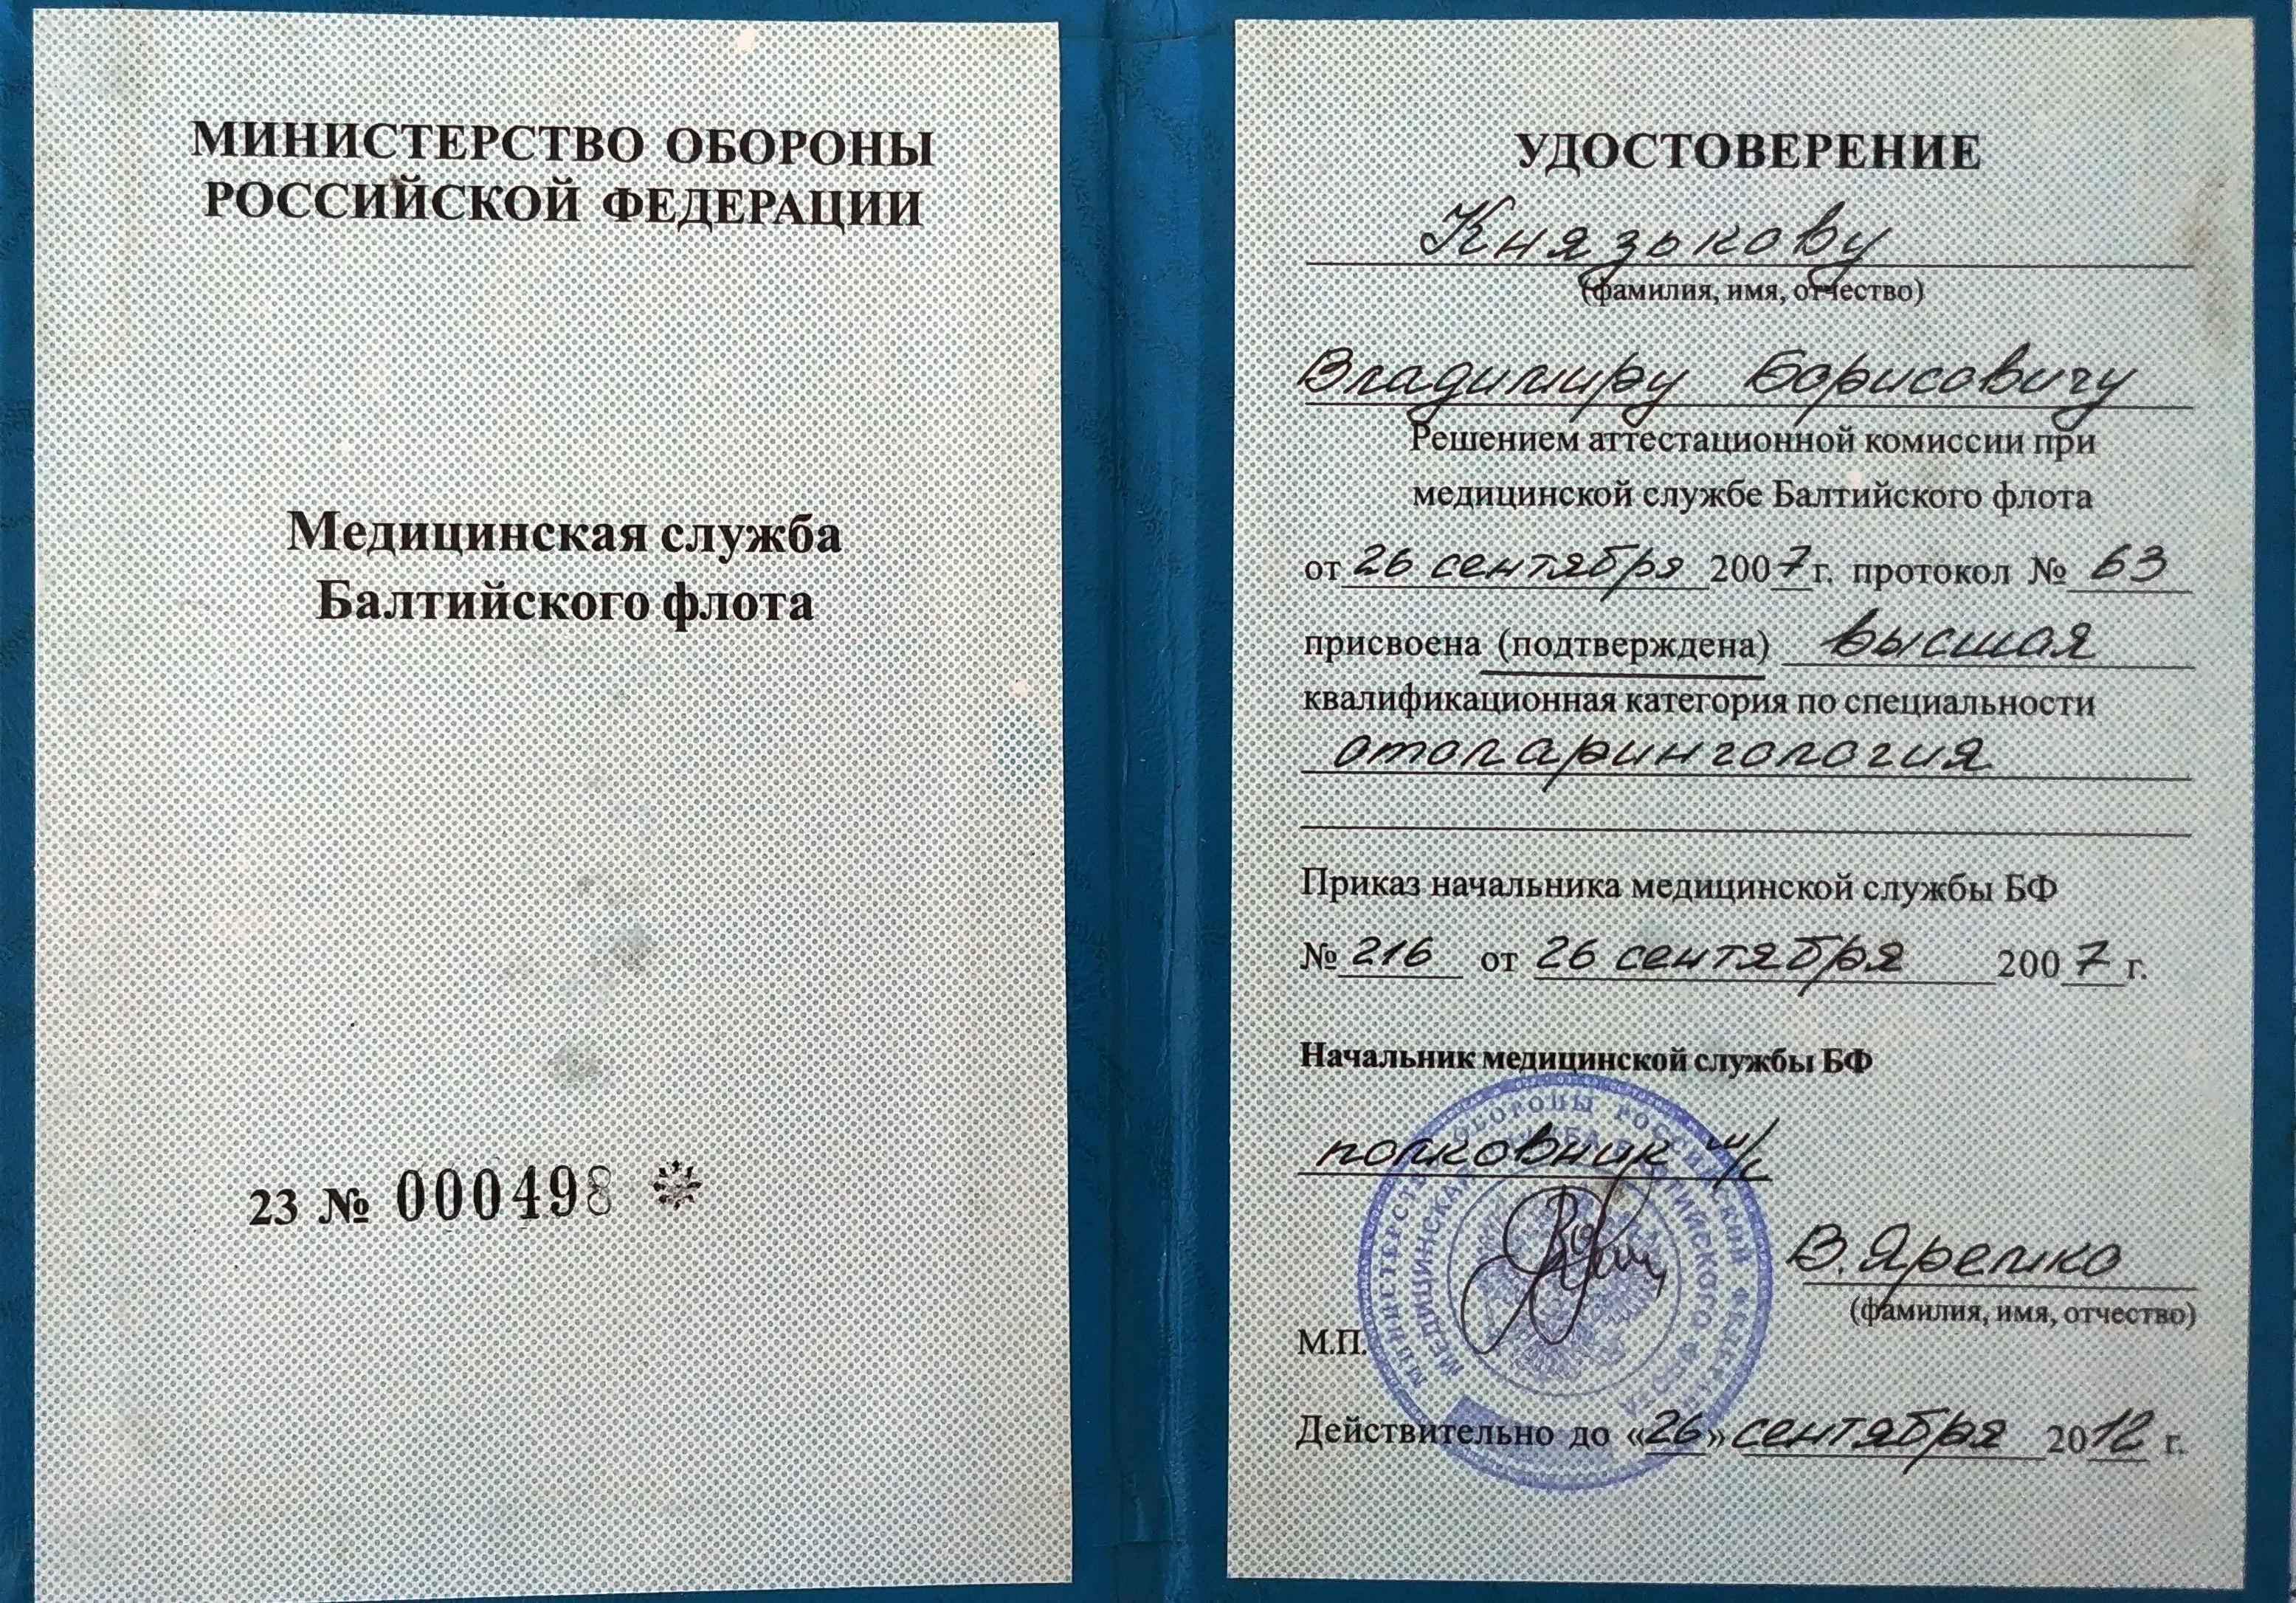 МИНИСТЕРСТВО ОБОРОНЫ
РОССИЙСКОЙ ФЕДЕРАЦИИ
Медицинская служба
Балтийского флота
23 № 000498
УДОСТОВЕРЕНИЕ
Князькову
(фамилия, имя, отчество)
Владимиру Борисовичу
Решением аттестационной комиссии при
медицинской службе Балтийского флота
от 26 сентября 2007 г. протокол № 63
присвоена (подтверждена) высшая
квалификационная категория по специальности
отоларингология
Приказ начальника медицинской службы БФ
№ 216 от 26 сентября 2007 г.
Начальник медицинской службы БФ
полковник м/с
В. Яремко
(фамилия, имя, отчество)
М.П.
МИНИСТЕРСТВО ОБОРОНЫ РОССИЙСКОЙ ФЕДЕРАЦИИ
МЕДИЦИНСКАЯ СЛУЖБА БАЛТИЙСКОГО ФЛОТА
Действительно до «26» сентября 2012 г.